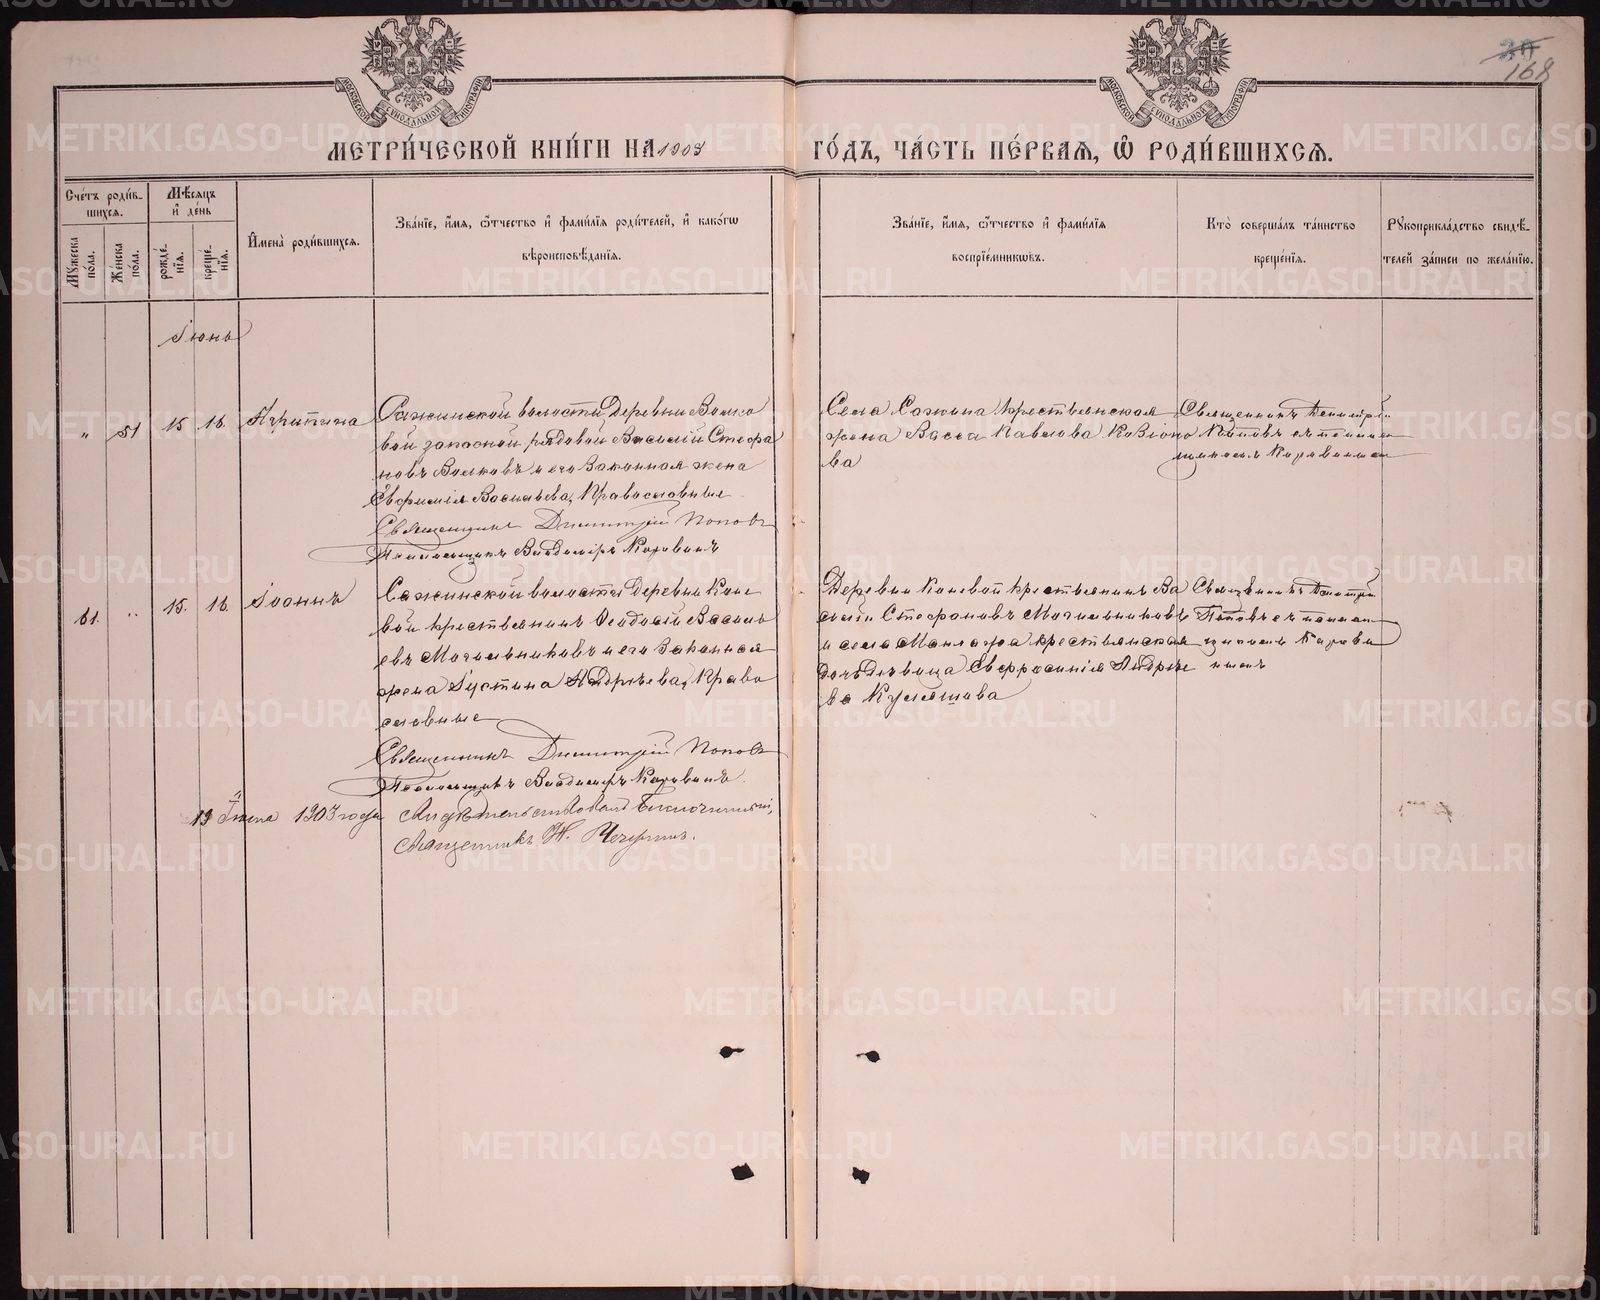 30
168
МОСКОВСКОЙ СѴНОДАЛЬНОЙ ТИПОГРАФІИ
МОСКОВСКОЙ СѴНОДАЛЬНОЙ ТИПОГРАФІИ
МЕТРИ́ЧЕСКОЙ КНИ́ГИ НА 1903 ГО́ДЪ, ЧА́СТЬ ПЕ́РВАЯ, Ѡ РОДИ́ВШИХСЯ.
Сче́тъ роди́в-
шихся.
Мѣ́сяцъ
и҆ де́нь
Мꙋ́жеска
по́ла.
Же́нска
по́ла.
рожде́-
нїя.
креще́-
нїя.
И҆мена̀ роди́вшихся.
Зва́нїе, и҆́мя, ѻ҆́тчество и҆ фамі́лїя роди́телей, и҆ како́гѡ
вѣроисповѣ́данїя.
Зва́нїе, и҆́мя, ѻ҆́тчество и҆ фамі́лїя
воспрїе́мникѡвъ.
Кто̀ соверша́лъ та́инство
креще́нїя.
Рꙋкоприкла́дство свидѣ́-
телей за́писи по жела́нїю.
Іюнь
" 51 15 16. Агрипина
Сажинской волости Деревни Волко
вой запасной рядовой Василій Стефа
новъ Волковъ и его Законная жена
Евфимія Васильева, Православные.
Священникъ Димитрій Поповъ
Псаломщикъ Владиміръ Караваевъ
Села Сажина Крестьянская
жена Васса Павлова
ва
Священникъ Димитрі
Поповъ съ псалом
щикомъ
61. " 15. 16. Іоаннъ
Сажинской волости Деревни Кон
вой крестьянинъ Ѳеодосій Василь
евъ Могильниковъ и его Законная
жена Іустина Андрѣева, Право
славные
Священникъ Димитрій Поповъ
Псаломщикъ Владиміръ
Деревни Коневой крестьянинъ Ва
силій Стефановъ Могильниковъ
и села крестьянская
дочь Дѣвица Евфросинія Андрѣе
ва Кулешова
Священникъ Димитрі
Поповъ съ псалом
щикомъ
19 Іюня 1903 года Свидѣтельствовалъ Благочинный,
Священникъ Н.
METRIKI.GASO-URAL.RU